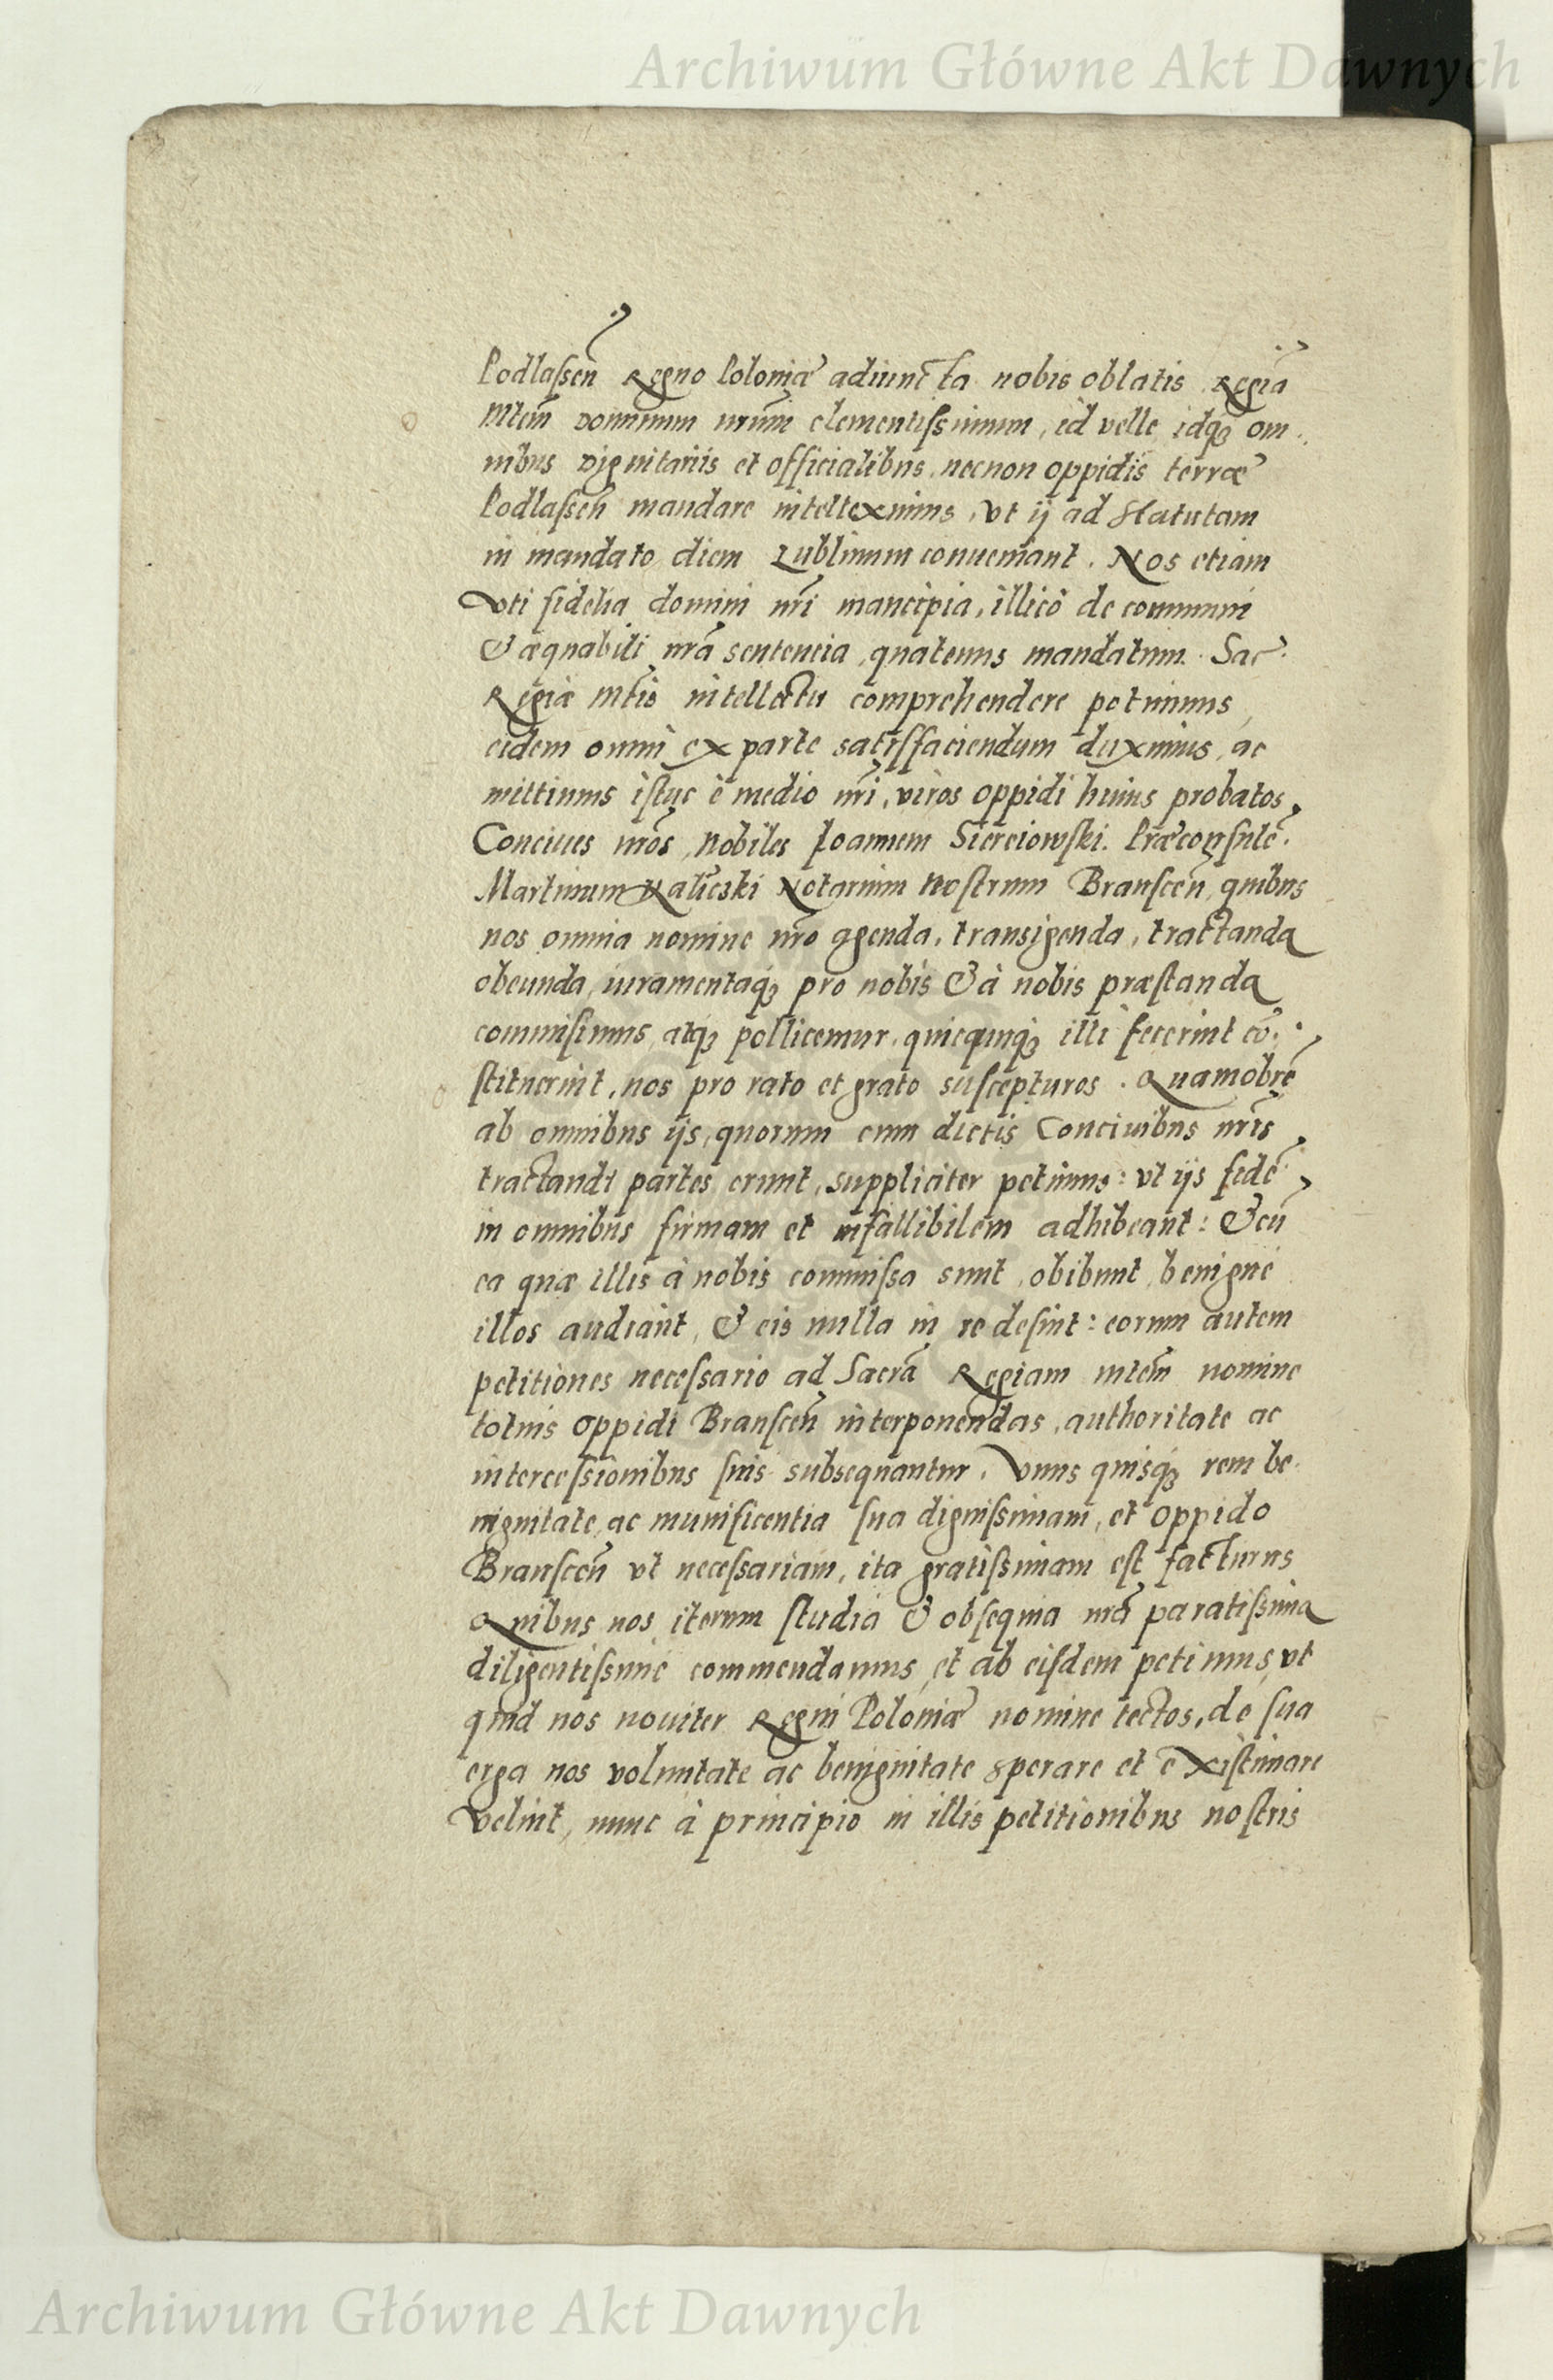 Archiwum Główne Akt Dawnych
Podlaſsen̄ Regno Poloniæ adiuncta nobis oblatis Regiā
Mtem̄ Dominum nr̄um clementiſsimum, id velle idq; om-
nibus Dignitariis et officialibus necnon oppidis terræ
Podlaſsen̄ mandare intelleximus, vt ij ad Statutam
in mandato diem Lublinum conueniant. Nos etiam
vti fidelia domini nr̄i mancipia, illicò de communi
& æquabili nr̄a sentencia, quatenus mandatum Sac:
Regiæ Mtis̄ intellectu comprehendere potuimus,
eidem omni ex parte satisfaciendum duximus, ac
mittimus iſtuc è medio nr̄i, viros oppidi huius probatos,
Conciues nr̄os, Nobiles Joannem Sierciowſki Præconſulē.
Martinum Notarium Noſtrum Branſcen̄, quibus
nos omnia nomine nr̄o agenda, transigenda, tractanda
obeunda, iuramentaq; pro nobis & à nobis præſtanda
commiſimus, atq; pollicemur, quicqunq; illi fecerint cō-
ſtituerint, nos pro rato et grato suſcepturos. Quamobrē
ab omnibus ijs, quorum cum dictis Conciuibus nr̄is
tractandi partes erunt, suppliciter petimus: vt ijs fidē
in omnibus firmam et infallibilem adhibeant: & cū
ea quæ illis à nobis commiſsa sunt, obibunt, benignè
illos audiant, & eis nulla in re deſint: eorum autem
petitiones neceſsario ad Sacrā Regiam mtem̄ nomine
totius oppidi Branſcen̄ interponendas, authoritate ac
interceſsionibus ſuis subsequantur. Vnus quisq; rem be-
nignitate, ac munificentia ſua digniſsimam, et oppido
Branſcen̄ vt neceſsariam, ita gratiſsimam eſt facturus
Quibus nos iterum ſtudia & obſequia nr̄a paratiſsima
diligentiſsimè commendamus, et ab eiſdem petimus, vt
quid nos nouiter Regni Poloniæ nomine tectos, de ſua
erga nos voluntate ac benignitate sperare et exiſtimare
velint, nunc à principio in illis petitionibus noſtris
Archiwum Główne Akt Dawnych